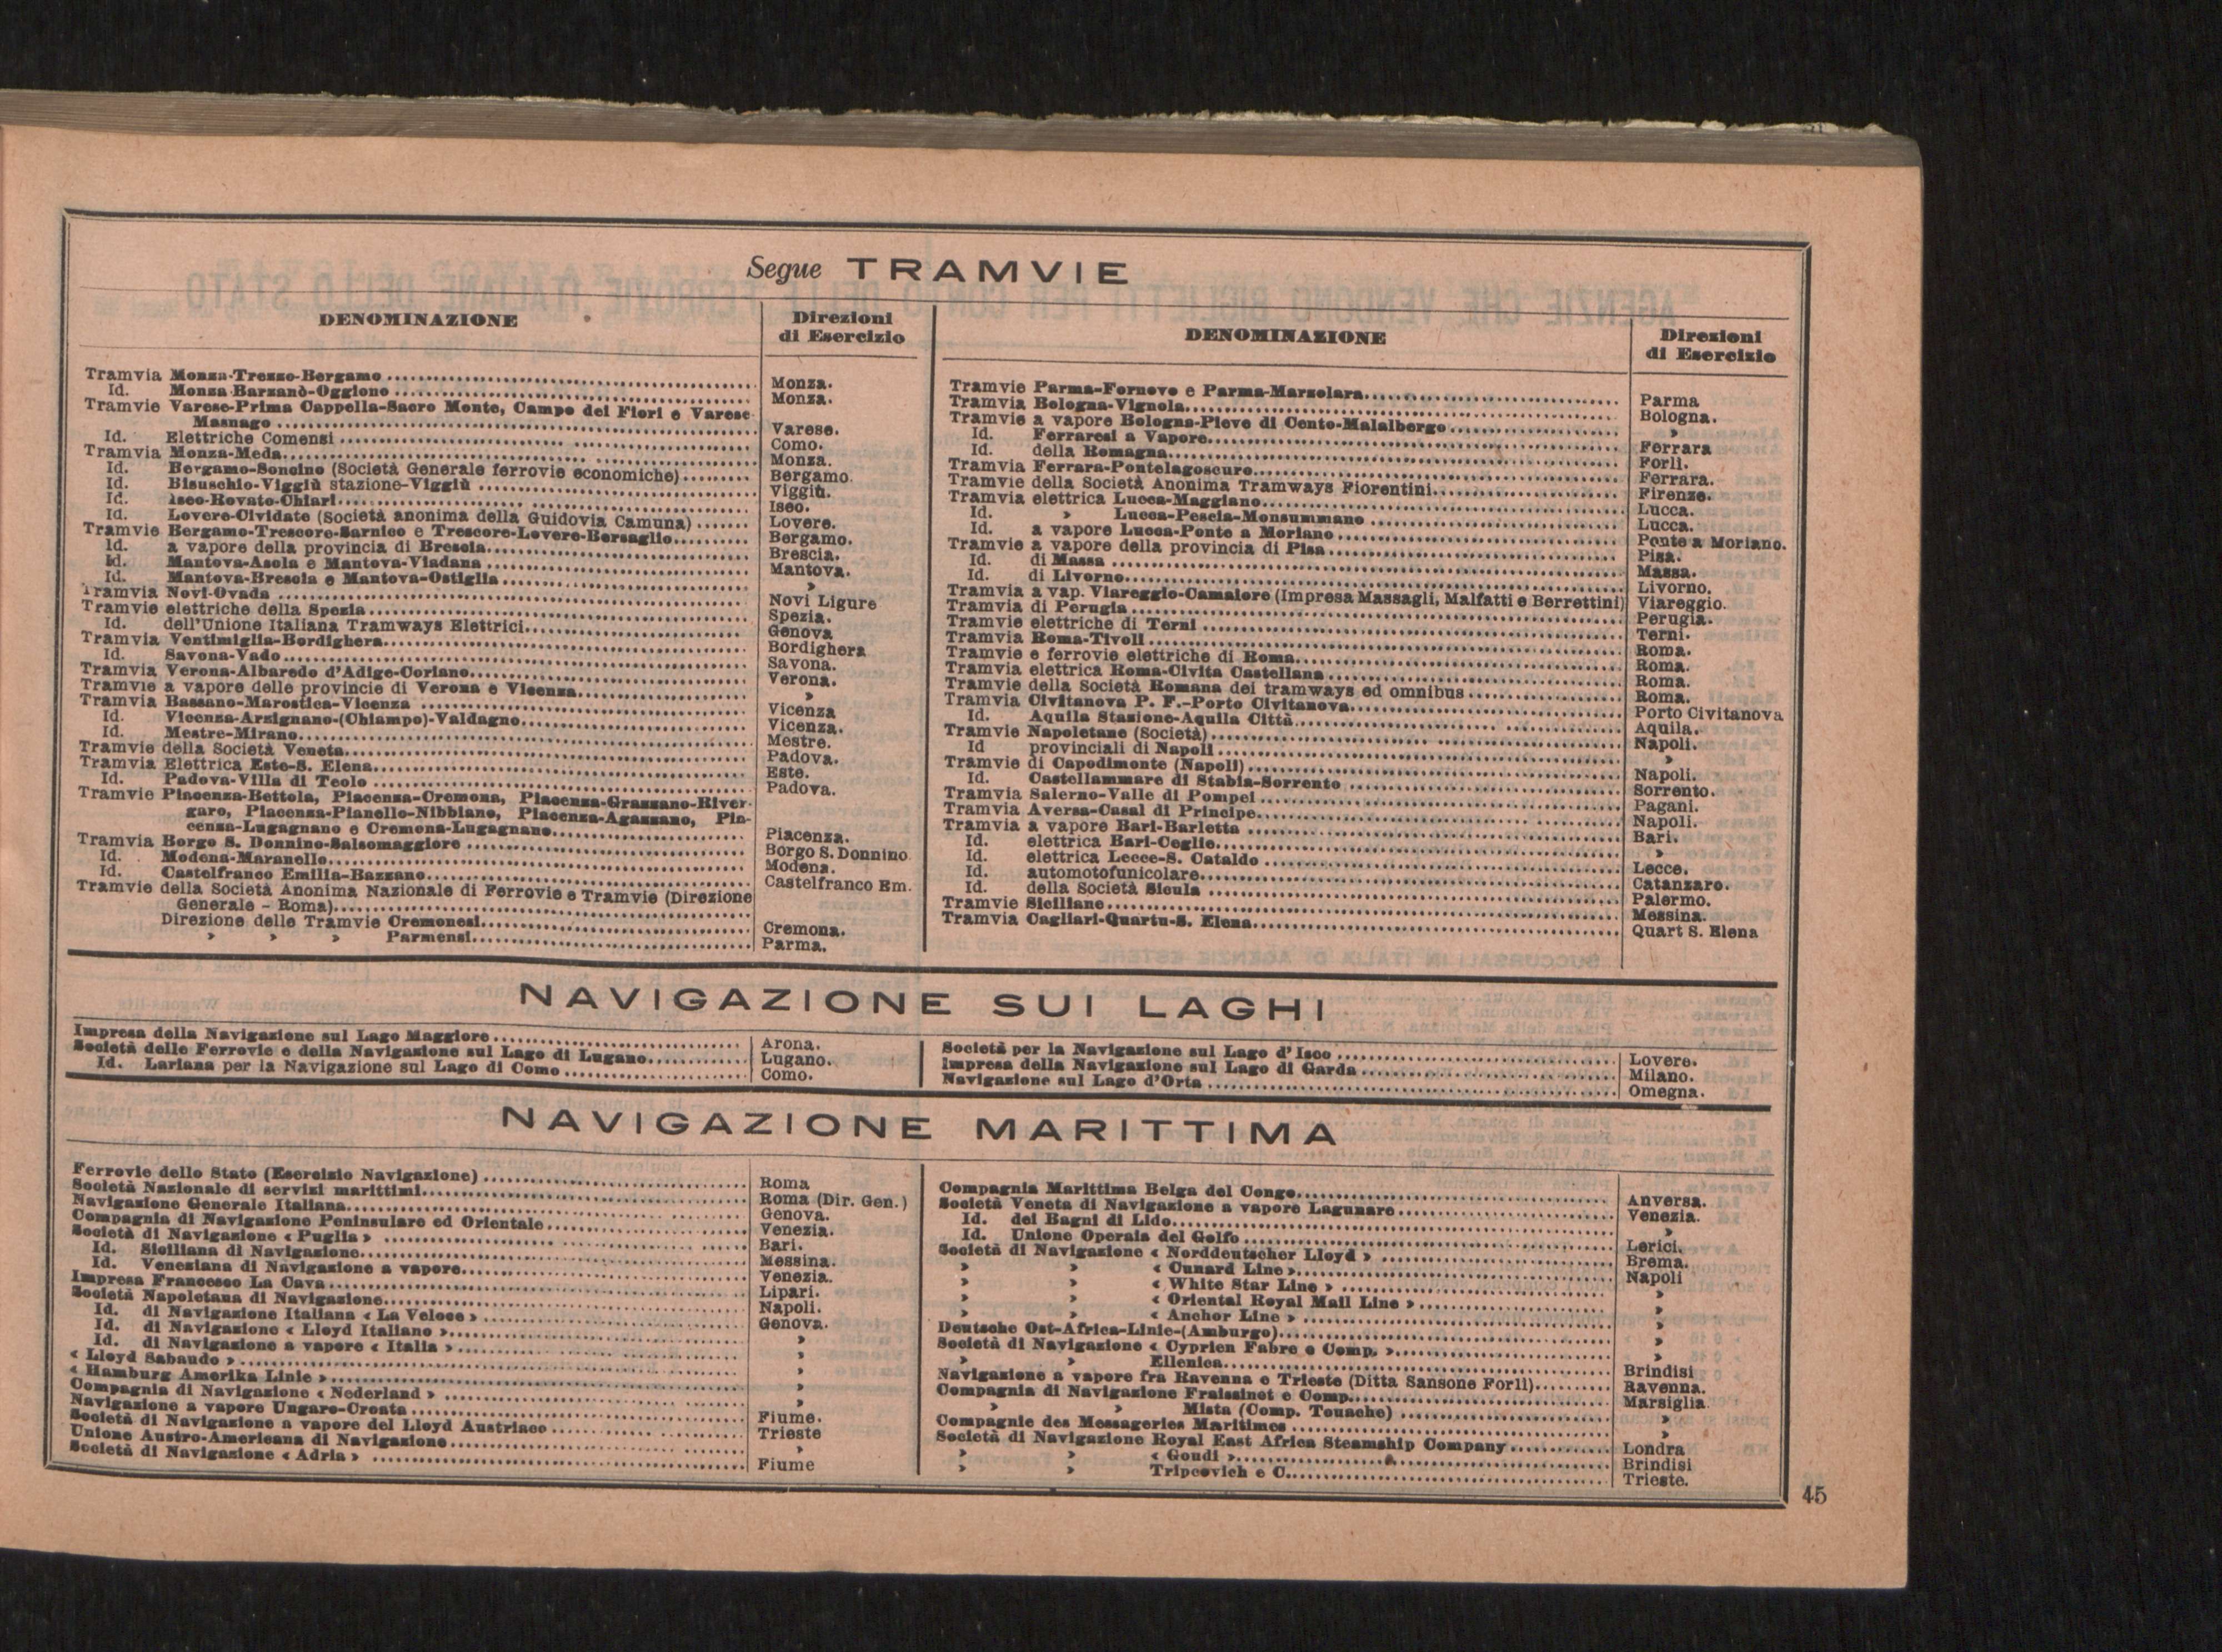 Segue TRAMVIE
DENOMINAZIONE
Direzioni
di Esercizio
Tramvia Monza-Trezzo-Bergamo ........ Monza.
Id. Monza-Barzanò-Oggiono ........ Monza.
Tramvie Varese-Prima Cappella-Sacro Monte, Campo dei Fiori e Varese-
Masnago ........ Varese.
Id. Elettriche Comensi ........ Como.
Tramvia Monza-Meda ........ Monza.
Id. Bergamo-Soncino (Società Generale ferrovie economiche) ........ Bergamo.
Id. Bisuschio-Viggiù stazione-Viggiù ........ Viggiù.
Id. Iseo-Rovato-Chiari ........ Iseo.
Id. Lovere-Cividate (Società anonima della Guidovia Camuna) ........ Lovere.
Tramvie Bergamo-Trescore-Sarnico e Trescore-Lovere-Bersaglio ........ Bergamo.
Id. a vapore della provincia di Brescia ........ Brescia.
Id. Mantova-Asola e Mantova-Viadana ........ Mantova.
Id. Mantova-Brescia e Mantova-Ostiglia ........ »
Tramvia Novi-Ovada ........ Novi Ligure
Tramvie elettriche della Spezia ........ Spezia.
Id. dell'Unione Italiana Tramways Elettrici ........ Genova
Tramvia Ventimiglia-Bordighera ........ Bordighera
Id. Savona-Vado ........ Savona.
Tramvia Verona-Albaredo d'Adige-Coriano ........ Verona.
Tramvie a vapore delle provincie di Verona e Vicenza ........ »
Tramvia Bassano-Marostica-Vicenza ........ Vicenza
Id. Vicenza-Arzignano-(Chiampo)-Valdagno ........ Vicenza.
Id. Mestre-Mirano ........ Mestre.
Tramvie della Società Veneta ........ Padova.
Tramvia Elettrica Este-S. Elena ........ Este.
Id. Padova-Villa di Teolo ........ Padova.
Tramvie Piacenza-Bettola, Piacenza-Cremona, Piacenza-Grazzano-River-
garo, Piacenza-Pianello-Nibbiano, Piacenza-Agazzano, Pia-
cenza-Lugagnano e Cremona-Lugagnano ........ Piacenza.
Tramvia Borgo S. Donnino-Salsomaggiore ........ Borgo S. Donnino
Id. Modena-Maranello ........ Modena.
Id. Castelfranco Emilia-Bazzano ........ Castelfranco Em.
Tramvie della Società Anonima Nazionale di Ferrovie e Tramvie (Direzione
Generale - Roma) ........
Direzione delle Tramvie Cremonesi ........ Cremona.
» » » Parmensi ........ Parma.
DENOMINAZIONE
Direzioni
di Esercizio
Tramvie Parma-Fornovo e Parma-Marzolara ........ Parma
Tramvia Bologna-Vignola ........ Bologna.
Tramvie a vapore Bologna-Pieve di Cento-Malalbergo ........ »
Id. Ferraresi a Vapore ........ Ferrara
Id. della Romagna ........ Forlì.
Tramvia Ferrara-Pontelagoscuro ........ Ferrara.
Tramvie della Società Anonima Tramways Fiorentini ........ Firenze.
Tramvia elettrica Lucca-Maggiano ........ Lucca.
Id. » Lucca-Pescia-Monsummano ........ Lucca.
Id. a vapore Lucca-Ponte a Moriano ........ Ponte a Moriano.
Tramvie a vapore della provincia di Pisa ........ Pisa.
Id. di Massa ........ Massa.
Id. di Livorno ........ Livorno.
Tramvia a vap. Viareggio-Camaiore (Impresa Massagli, Malfatti e Berrettini) Viareggio.
Tramvia di Perugia ........ Perugia.
Tramvie elettriche di Terni ........ Terni.
Tramvia Roma-Tivoli ........ Roma.
Tramvie e ferrovie elettriche di Roma ........ Roma.
Tramvia elettrica Roma-Civita Castellana ........ Roma.
Tramvie della Società Romana dei tramways ed omnibus ........ Roma.
Tramvia Civitanova P. F.-Porto Civitanova ........ Porto Civitanova
Id. Aquila Stazione-Aquila Città ........ Aquila.
Tramvie Napoletane (Società) ........ Napoli.
Id provinciali di Napoli ........ »
Tramvie di Capodimonte (Napoli) ........ Napoli.
Id. Castellammare di Stabia-Sorrento ........ Sorrento.
Tramvia Salerno-Valle di Pompei ........ Pagani.
Tramvia Aversa-Casal di Principe ........ Napoli.
Tramvia a vapore Bari-Barletta ........ Bari.
Id. elettrica Bari-Ceglie ........ »
Id. elettrica Lecce-S. Cataldo ........ Lecce.
Id. automotofunicolare ........ Catanzaro.
Id. della Società Sicula ........ Palermo.
Tramvie Siciliane ........ Messina.
Tramvia Cagliari-Quartu-S. Elena ........ Quart S. Elena
NAVIGAZIONE SUI LAGHI
Impresa della Navigazione sul Lago Maggiore ........ Arona.
Società delle Ferrovie e della Navigazione sul Lago di Lugano ........ Lugano.
Id. Lariana per la Navigazione sul Lago di Como ........ Como.
Società per la Navigazione sul Lago d'Iseo ........ Lovere.
Impresa della Navigazione sul Lago di Garda ........ Milano.
Navigazione sul Lago d'Orta ........ Omegna.
NAVIGAZIONE MARITTIMA
Ferrovie dello Stato (Esercizio Navigazione) ........ Roma
Società Nazionale di servizi marittimi ........ Roma (Dir. Gen.)
Navigazione Generale Italiana ........ Genova.
Compagnia di Navigazione Peninsulare ed Orientale ........ Venezia.
Società di Navigazione « Puglia » ........ Bari.
Id. Siciliana di Navigazione ........ Messina.
Id. Veneziana di Navigazione a vapore ........ Venezia.
Impresa Francesco La Cava ........ Lipari.
Società Napoletana di Navigazione ........ Napoli.
Id. di Navigazione Italiana « La Veloce » ........ Genova.
Id. di Navigazione « Lloyd Italiano » ........ »
Id. di Navigazione a vapore « Italia » ........ »
« Lloyd Sabaudo » ........ »
« Hamburg Amerika Linie » ........ »
Compagnia di Navigazione « Nederland » ........ »
Navigazione a vapore Ungaro-Croata ........ Fiume.
Società di Navigazione a vapore del Lloyd Austriaco ........ Trieste
Unione Austro-Americana di Navigazione ........ »
Società di Navigazione « Adria » ........ Fiume
Compagnia Marittima Belga del Congo ........ Anversa.
Società Veneta di Navigazione a vapore Lagunare ........ Venezia.
Id. dei Bagni di Lido ........ »
Id. Unione Operaia del Golfo ........ Lerici.
Società di Navigazione « Norddeutscher Lloyd » ........ Brema.
» » « Cunard Line » ........ Napoli
» » « White Star Line » ........ »
» » « Oriental Royal Mail Line » ........ »
» » « Anchor Line » ........ »
Deutsche Ost-Africa-Linie-(Amburgo) ........ »
Società di Navigazione « Cyprien Fabre e Comp. » ........ »
» » Ellenica ........ Brindisi
Navigazione a vapore fra Ravenna e Trieste (Ditta Sansone Forlì) ........ Ravenna.
Compagnia di Navigazione Fraissinet e Comp. ........ Marsiglia
» » Mista (Comp. Touache) ........ »
Compagnie des Messageries Maritimes ........ »
Società di Navigazione Royal East Africa Steamship Company ........ Londra
» » « Goudi » ........ Brindisi
» » Tripcovich e C. ........ Trieste.
45